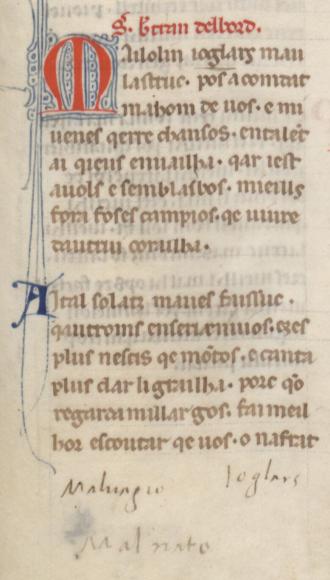 S. Bertran delbord.
Mailolin ioglars mau
lastruc. pos acomtat
mahom de uos. e mi
uenes qerre chansos. entalēt
ai qieus enuailha. qar iest
auols e semblasbos. mieills
fora foses campios. qe uiure
dautrui corailha.
Aital solatz maues
plus nescis qe motos. e canta
plus clar li grailha. porc qā
regarda millargos. fai meil
hor escoutar qe uos. o nafrat
Maluagio Ioglars
Mal nato